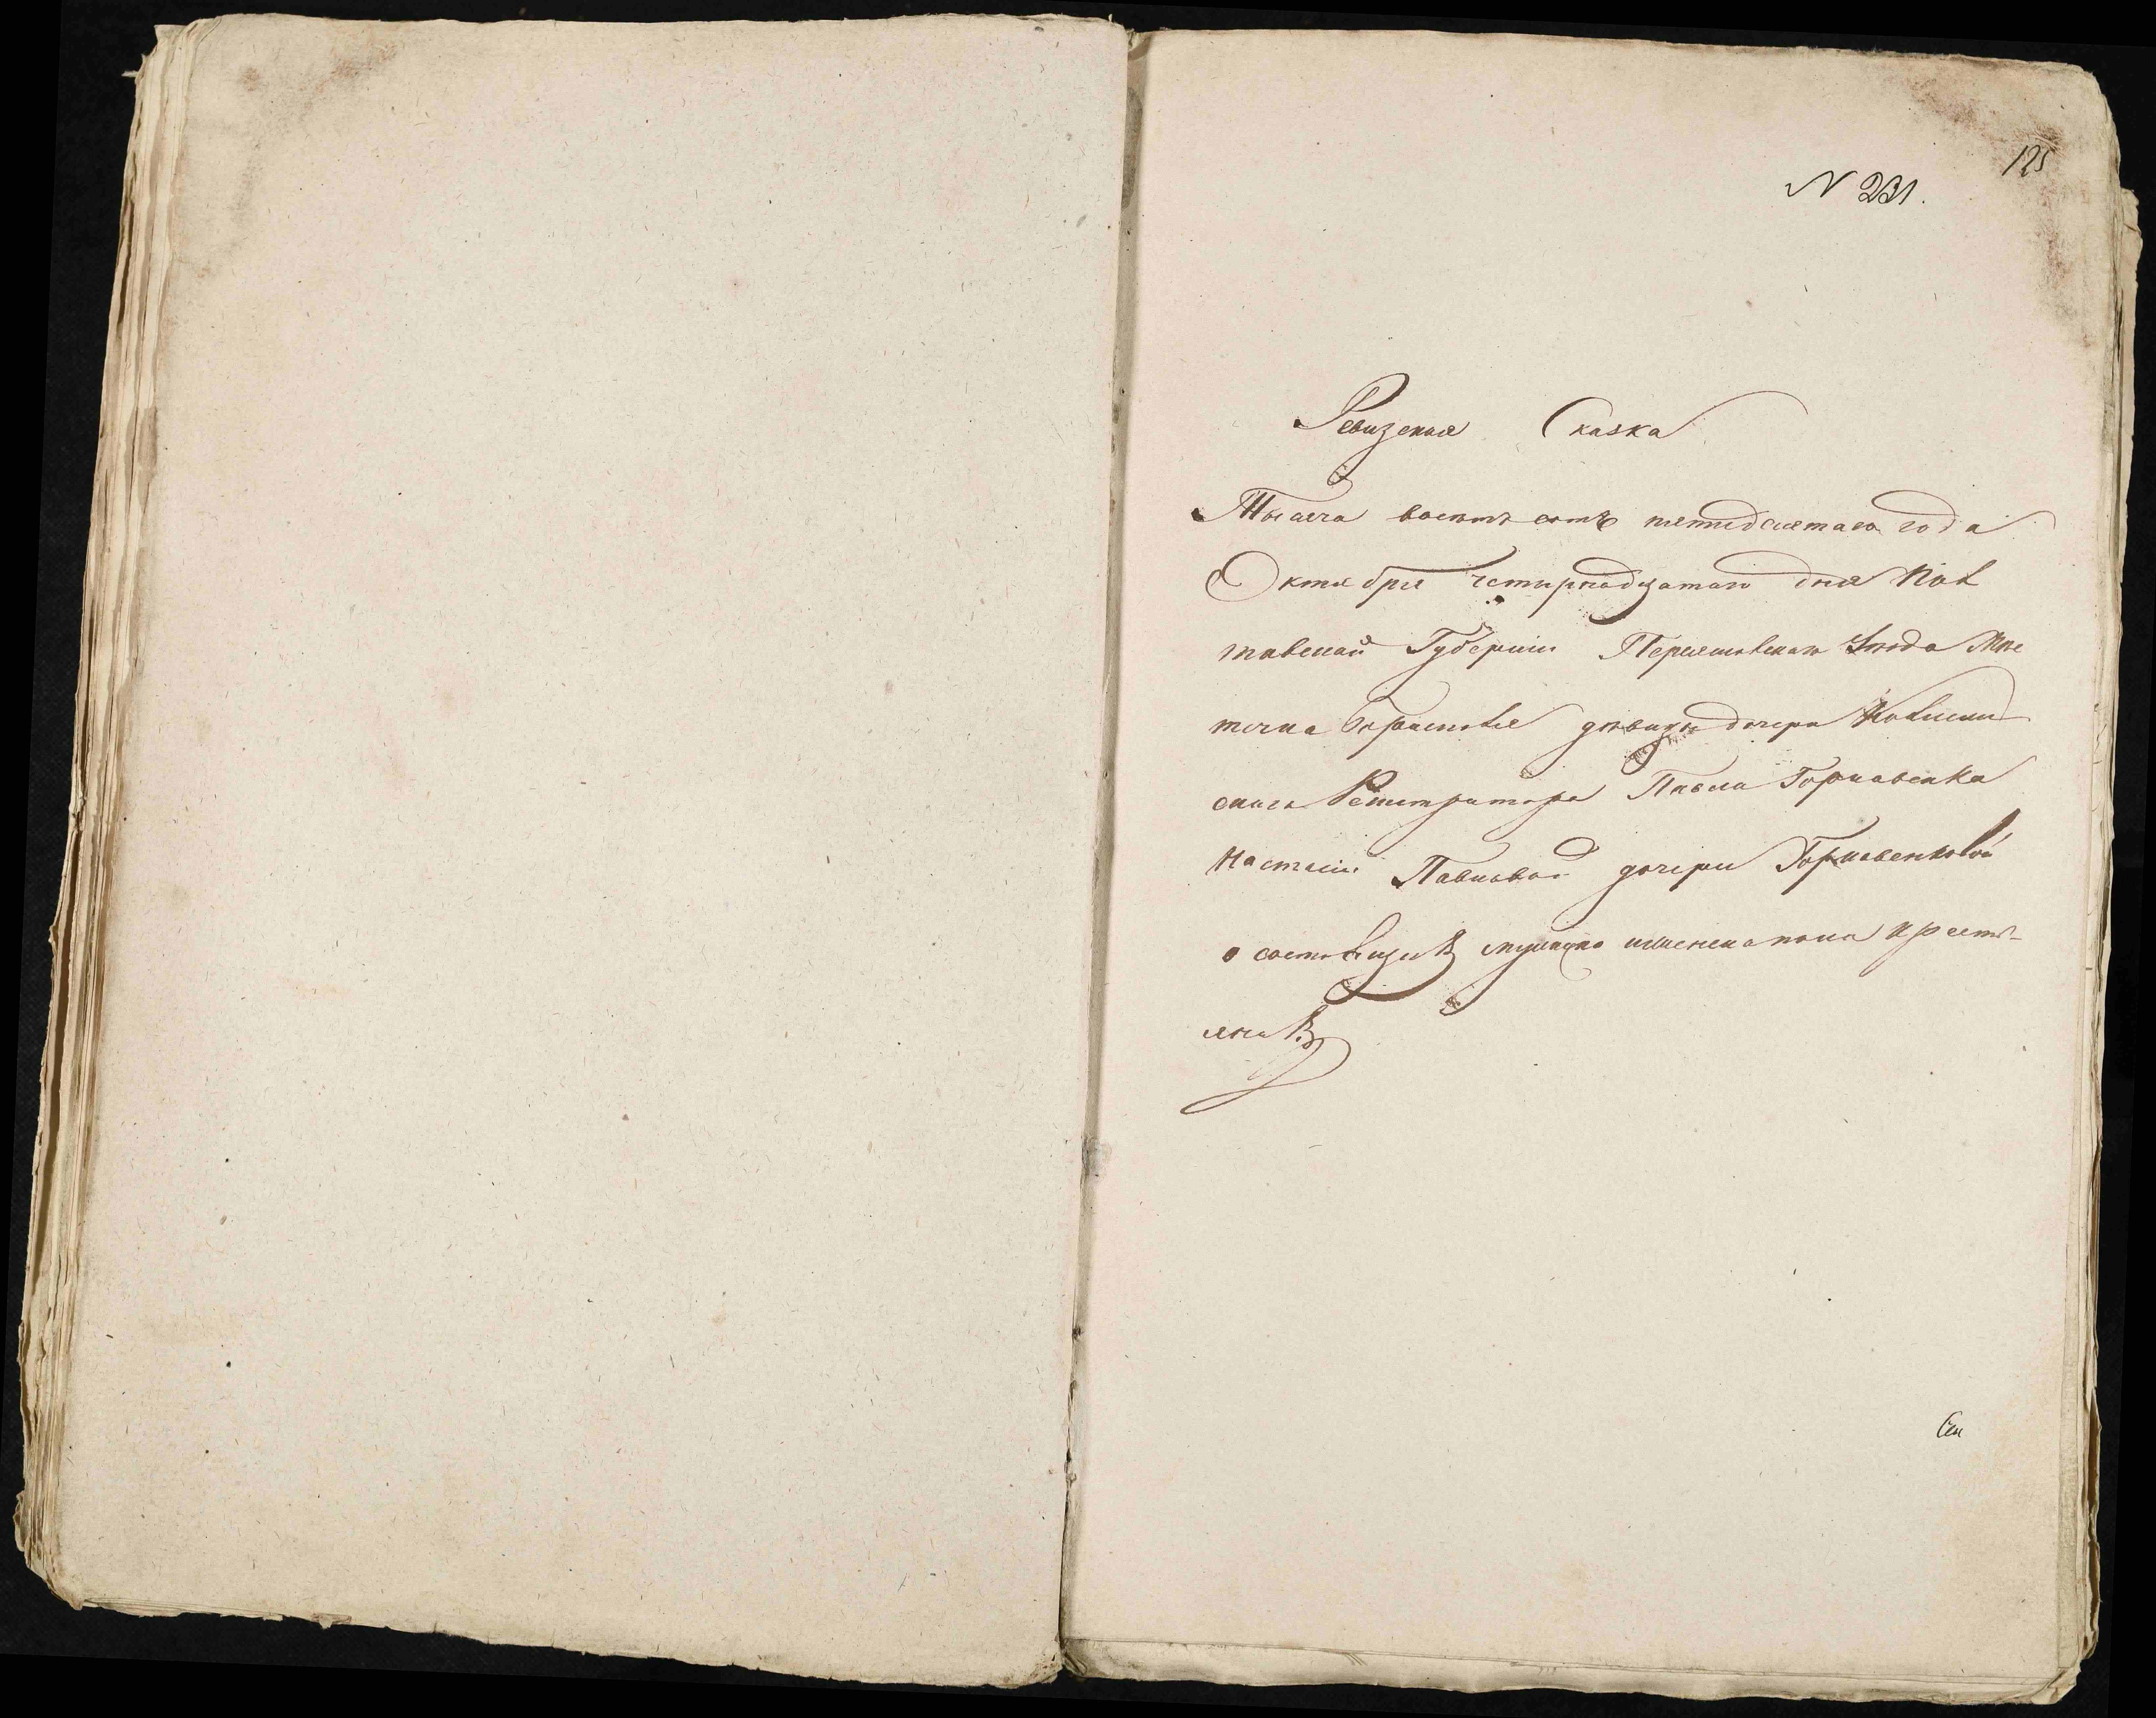 125
N 231.
Ревизская Сказка
Тысяча восемъ сотъ пятидесятаго года
Октября четырнадцатаго дня Пол
тавской Губернии Переяславскаго Уезда Мѣс
течка Борисполя дѣвицы дочери Коллежс
скаго Регистратора Павла Горкавенка
Настасіи Павловой дочери Горкавенковой
о состоящихъ мужеска женска пола кресть-
янахъ